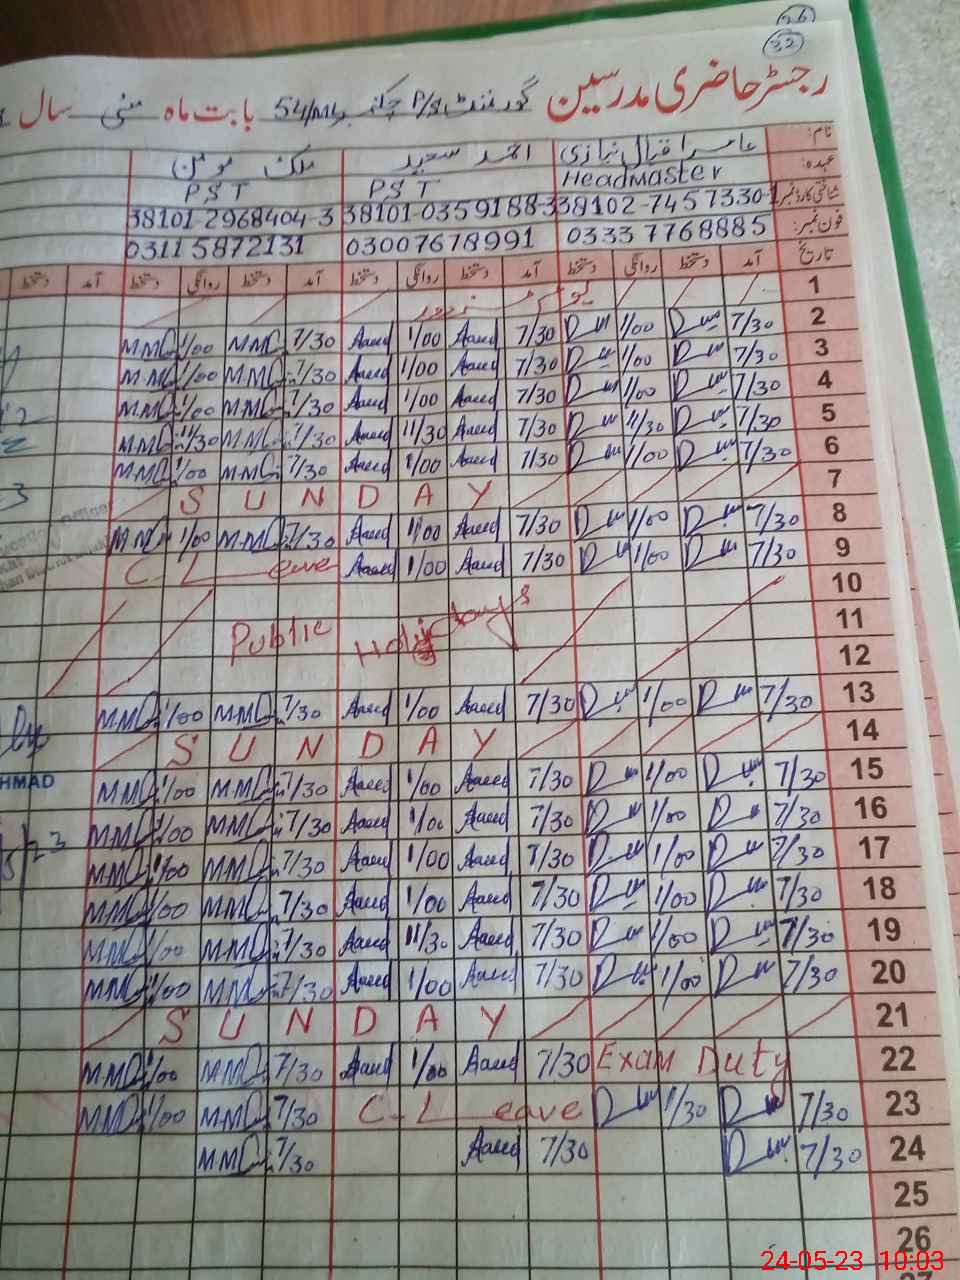 26
32
رجسٹر حاضری مدرسین گورنمنٹ P/S چک نمبر 54/ML بابت ماہ مئی سال
نام: عامر اقبال نیازی احمد سعید ملک مومن
عہدہ: Headmaster PST PST
شناختی کارڈ نمبر 38102-7457330-1 38101-0359188-3 38101-2968404-3
فون نمبر: 03337768885 03007678991 03115872131
تاریخ آمد دستخط روانگی دستخط آمد دستخط روانگی دستخط آمد دستخط روانگی دستخط آمد دستخط
1
MMQ 1/00 MMQ 7/30 Aaeed 1/00 Aaeed 7/30 1/00 7/30 2
MMQ 1/00 MMQ 7/30 Aaeed 1/00 Aaeed 7/30 1/00 7/30 3
MMQ 1/00 MMQ 7/30 Aaeed 1/00 Aaeed 7/30 1/00 7/30 4
MMQ 11/30 MMQ 7/30 Aaeed 11/30 Aaeed 7/30 11/30 7/30 5
MMQ 1/00 MMQ 7/30 Aaeed 1/00 Aaeed 7/30 1/00 7/30 6
SUNDAY 7
MMQ 1/00 MMQ 7/30 Aaeed 1/00 Aaeed 7/30 1/00 7/30 8
C-Leave Aaeed 1/00 Aaeed 7/30 1/00 7/30 9
10
Public Holydays 11
12
MMQ 1/00 MMQ 7/30 Aaeed 1/00 Aaeed 7/30 1/00 7/30 13
SUNDAY 14
HMAD
MMQ 1/00 MMQ 7/30 Aaeed 1/00 Aaeed 7/30 1/00 7/30 15
MMQ 1/00 MMQ 7/30 Aaeed 1/00 Aaeed 7/30 1/00 7/30 16
5/23 MMQ 1/00 MMQ 7/30 Aaeed 1/00 Aaeed 7/30 1/00 7/30 17
MMQ 1/00 MMQ 7/30 Aaeed 1/00 Aaeed 7/30 1/00 7/30 18
MMQ 1/00 MMQ 7/30 Aaeed 11/30 Aaeed 7/30 1/00 7/30 19
MMQ 1/00 MMQ 7/30 Aaeed 1/00 Aaeed 7/30 1/00 7/30 20
SUNDAY 21
MMQ 1/00 MMQ 7/30 Aaeed 1/00 Aaeed 7/30 Exam Duty 22
MMQ 1/00 MMQ 7/30 C-Leave 1/30 7/30 23
MMQ 7/30 Aaeed 7/30 7/30 24
25
26
24-05-23 10:03